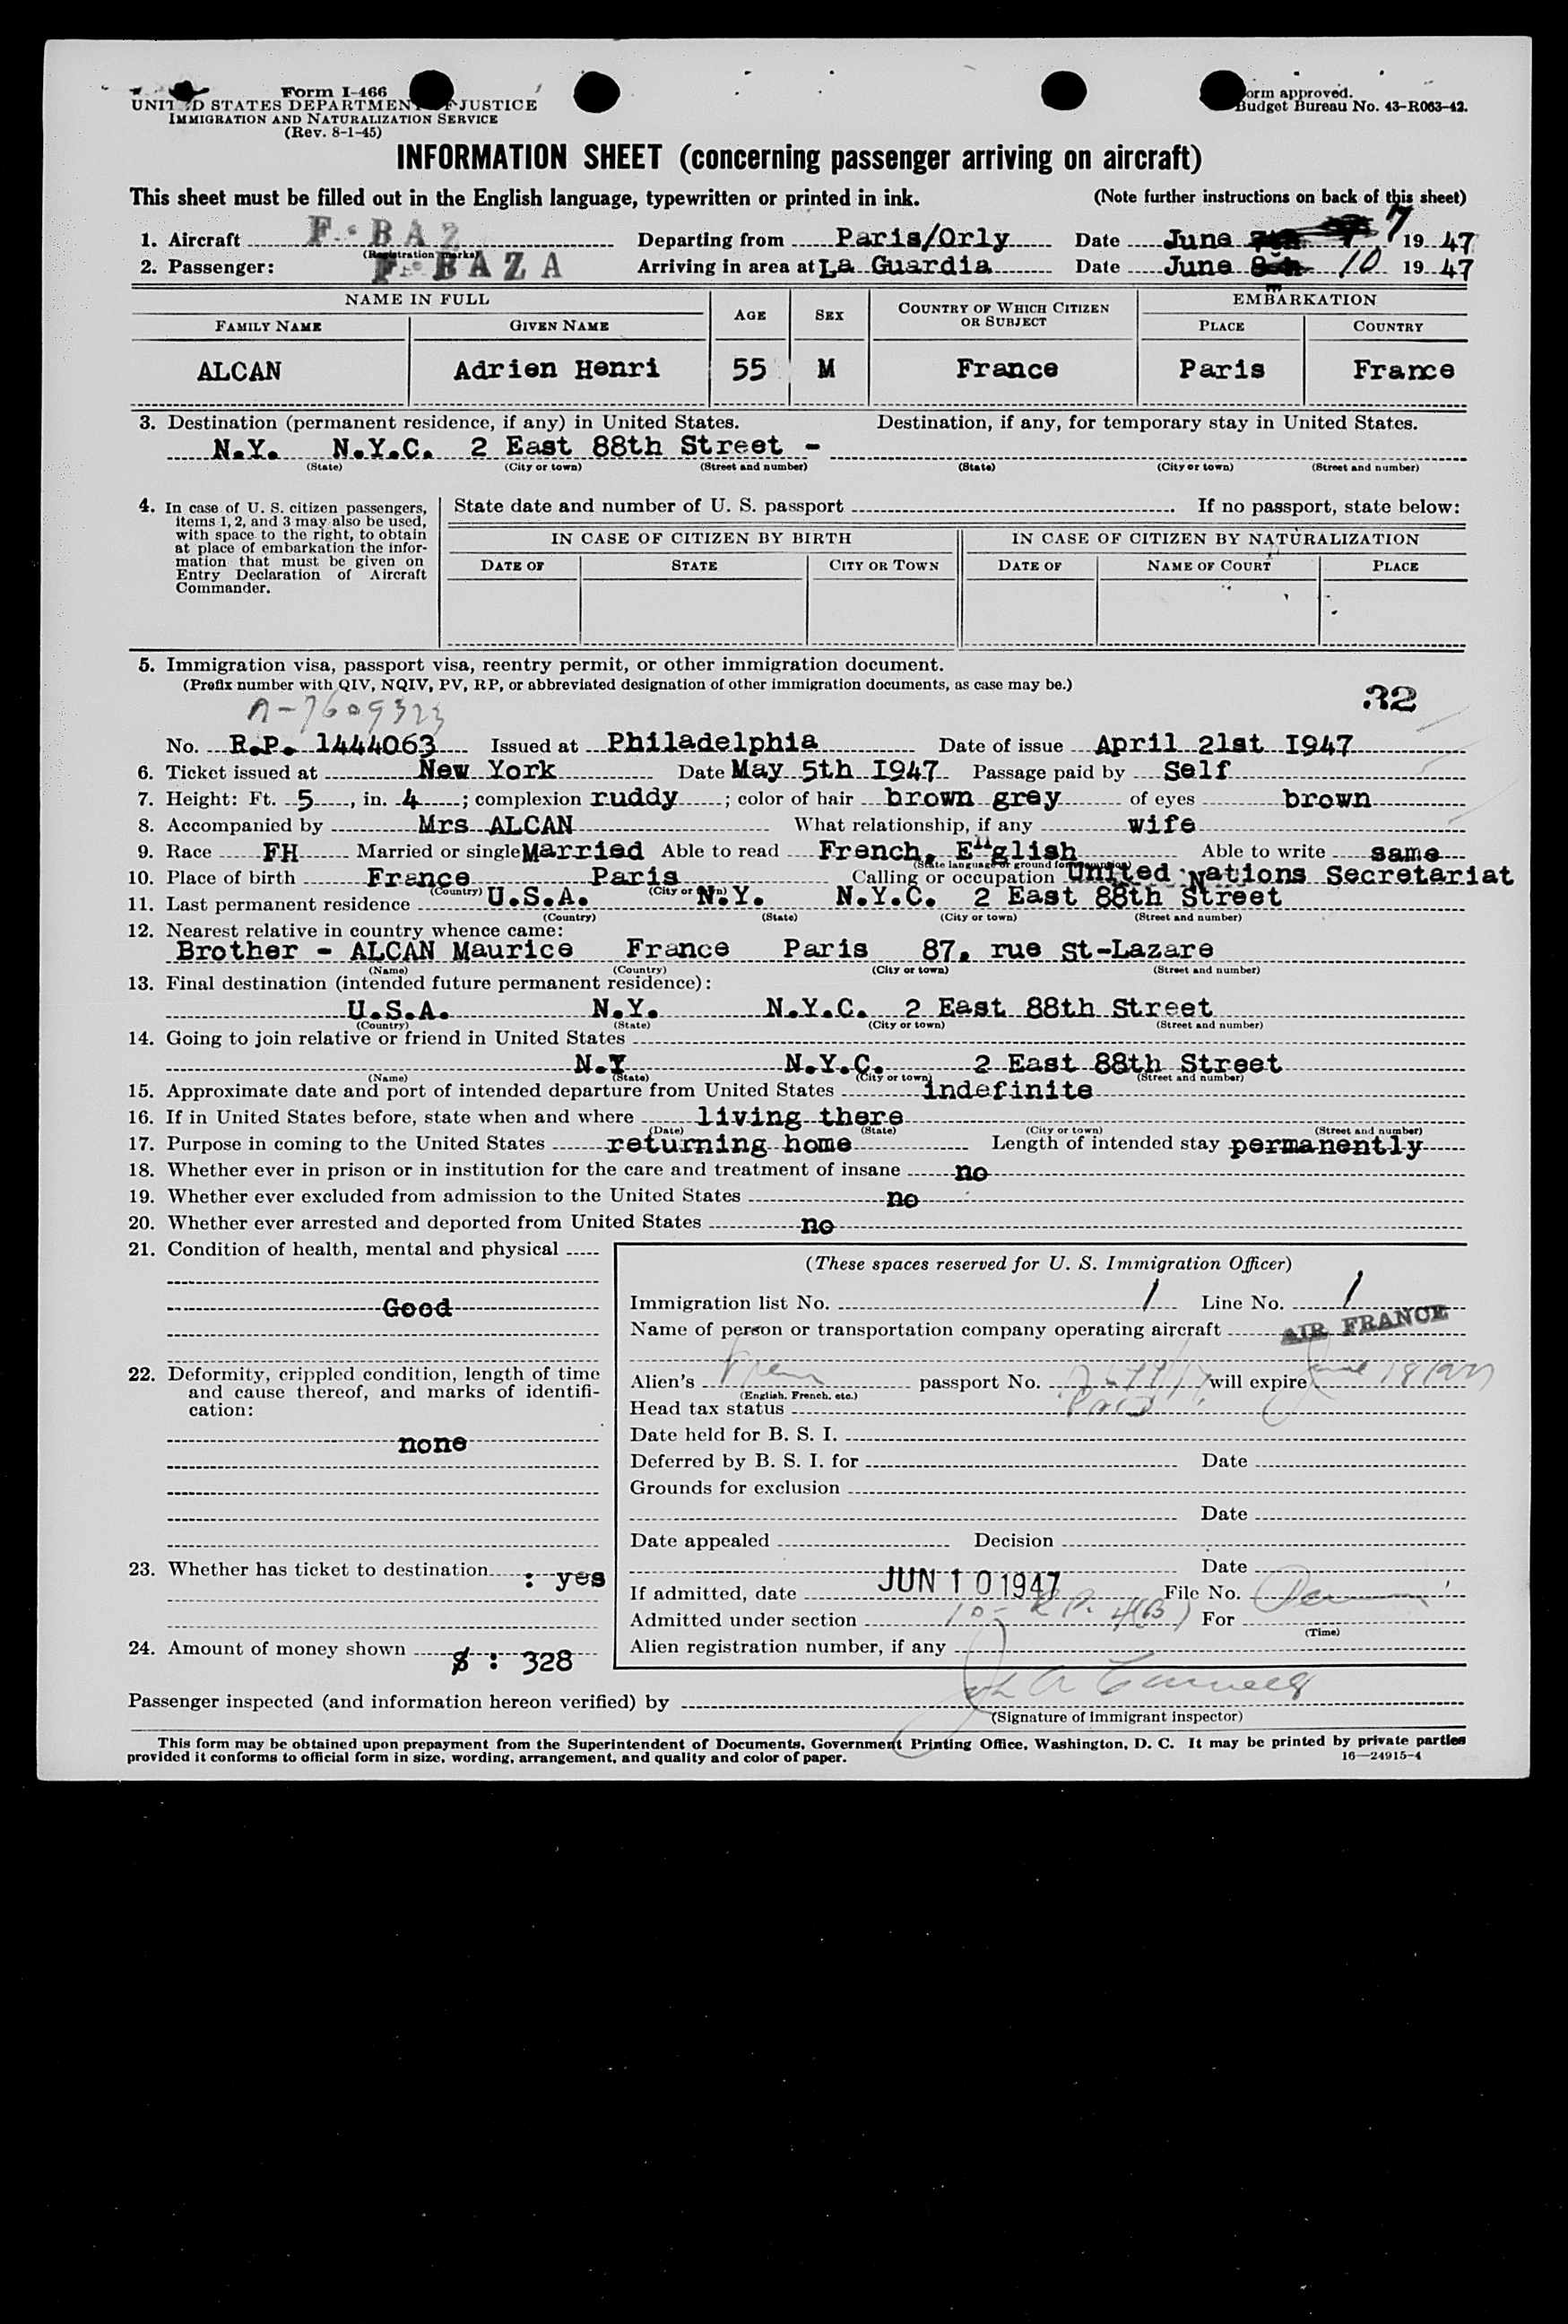 Form I-466
UNITED STATES DEPARTMENT OF JUSTICE
IMMIGRATION AND NATURALIZATION SERVICE
(Rev. 8-1-45)
Form approved.
Budget Bureau No. 43-R063-42.
INFORMATION SHEET (concerning passenger arriving on aircraft)
This sheet must be filled out in the English language, typewritten or printed in ink. (Note further instructions on back of this sheet)
1. Aircraft F-BAZ Departing from Paris/Orly Date June 7 1947
(Registration marks)
2. Passenger: F-BAZA Arriving in area at La Guardia Date June 10 1947
NAME IN FULL AGE SEX COUNTRY OF WHICH CITIZEN OR SUBJECT EMBARKATION
FAMILY NAME GIVEN NAME PLACE COUNTRY
ALCAN Adrien Henri 55 M France Paris France
3. Destination (permanent residence, if any) in United States. Destination, if any, for temporary stay in United States.
N.Y. N.Y.C. 2 East 88th Street -
(State) (City or town) (Street and number) (State) (City or town) (Street and number)
4. In case of U. S. citizen passengers, items 1, 2, and 3 may also be used, with space to the right, to obtain at place of embarkation the information that must be given on Entry Declaration of Aircraft Commander.
State date and number of U. S. passport . If no passport, state below:
IN CASE OF CITIZEN BY BIRTH IN CASE OF CITIZEN BY NATURALIZATION
DATE OF STATE CITY OR TOWN DATE OF NAME OF COURT PLACE
5. Immigration visa, passport visa, reentry permit, or other immigration document.
(Prefix number with QIV, NQIV, PV, RP, or abbreviated designation of other immigration documents, as case may be.)
32
A-7609323
No. R.P. 1444063 Issued at Philadelphia Date of issue April 21st I947
6. Ticket issued at New York Date May 5th I947 Passage paid by Self
7. Height: Ft. 5, in. 4; complexion ruddy; color of hair brown grey of eyes brown
8. Accompanied by Mrs ALCAN What relationship, if any wife
9. Race FH Married or single Married Able to read French, English Able to write same
(State language or ground for exemption)
10. Place of birth France Paris Calling or occupation United Nations Secretariat
(Country) (City or town)
11. Last permanent residence U.S.A. N.Y. N.Y.C. 2 East 88th Street
(Country) (State) (City or town) (Street and number)
12. Nearest relative in country whence came:
Brother - ALCAN Maurice France Paris 87, rue St-Lazare
(Name) (Country) (City or town) (Street and number)
13. Final destination (intended future permanent residence):
U.S.A. N.Y. N.Y.C. 2 East 88th Street
(Country) (State) (City or town) (Street and number)
14. Going to join relative or friend in United States
N.Y N.Y.C. 2 East 88th Street
(Name) (State) (City or town) (Street and number)
15. Approximate date and port of intended departure from United States indefinite
16. If in United States before, state when and where living there
(Date) (State) (City or town) (Street and number)
17. Purpose in coming to the United States returning home Length of intended stay permanently
18. Whether ever in prison or in institution for the care and treatment of insane no
19. Whether ever excluded from admission to the United States no
20. Whether ever arrested and deported from United States no
21. Condition of health, mental and physical
Good
22. Deformity, crippled condition, length of time and cause thereof, and marks of identification:
none
23. Whether has ticket to destination : yes
24. Amount of money shown $ : 328
(These spaces reserved for U. S. Immigration Officer)
Immigration list No. 1 Line No. 1
Name of person or transportation company operating aircraft AIR FRANCE
Alien's passport No. will expire June 18
(English, French, etc.)
Head tax status Paid
Date held for B. S. I.
Deferred by B. S. I. for Date
Grounds for exclusion
Date
Date appealed Decision
Date
If admitted, date JUN 10 1947 File No.
Admitted under section R P. 4(B) For
(Time)
Alien registration number, if any
Passenger inspected (and information hereon verified) by
(Signature of immigrant inspector)
This form may be obtained upon prepayment from the Superintendent of Documents, Government Printing Office, Washington, D. C. It may be printed by private parties
provided it conforms to official form in size, wording, arrangement, and quality and color of paper. 16—24915-4